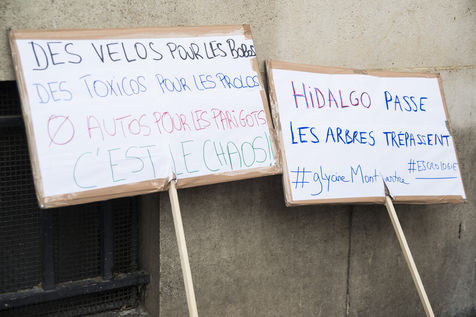 DES VELOS POUR LES BOBOS
DES TOXICOS POUR LES PROLOS
Ø AUTOS POUR LES PARIGOTS
C'EST LE CHAOS!
HiDALGO PASSE
LES ARBRES TRÉPASSENT
#ESCROLOGIE
#glycine Montmartre